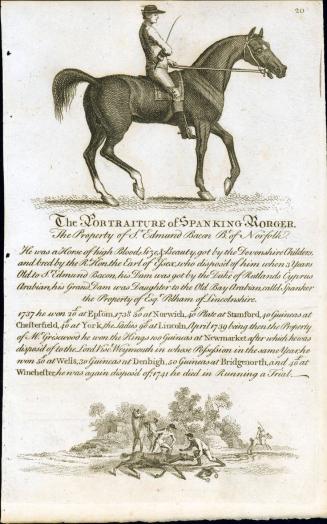 20
The PORTRAITURE of SPANKING RORGER.
The Property of Sr. Edmund Bacon Bt. of Norfolk
He was a Horse of high Blood, Size, & Beauty, got by the Devonshire Childers,
and bred by the Rt. Hon. the Earl of Essex, who disposd of him when 3 Years
Old to Sr. Edmund Bacon, his Dam was got by the Duke of Rutlands Cyprus
Arabian, his Grand Dam was Daughter to the Old Bay Arabian, calld Spanker
the Property of Esqr. Pelham of Lincolnshire.
1737 he won 20 at Epsom, 1738 50 at Norwich, 40 Plate at Stamford, 40 Guineas at
Chesterfield, 40 at York, the Ladies 90 at Lincoln, April 1739 being then the Property
of Mr. Grisewood he won the Kings 100 Guineas at Newmarket, after which he was
disposd of to the Lord Visc. Weymouth in whose Possession in the same Year, he
won 50 at Wells, 30 Guineas at Denbigh, 50 Guineas at Bridgenorth, and 40 at
Winchester, he was again disposd of, 1741 he died in Running a Trial.